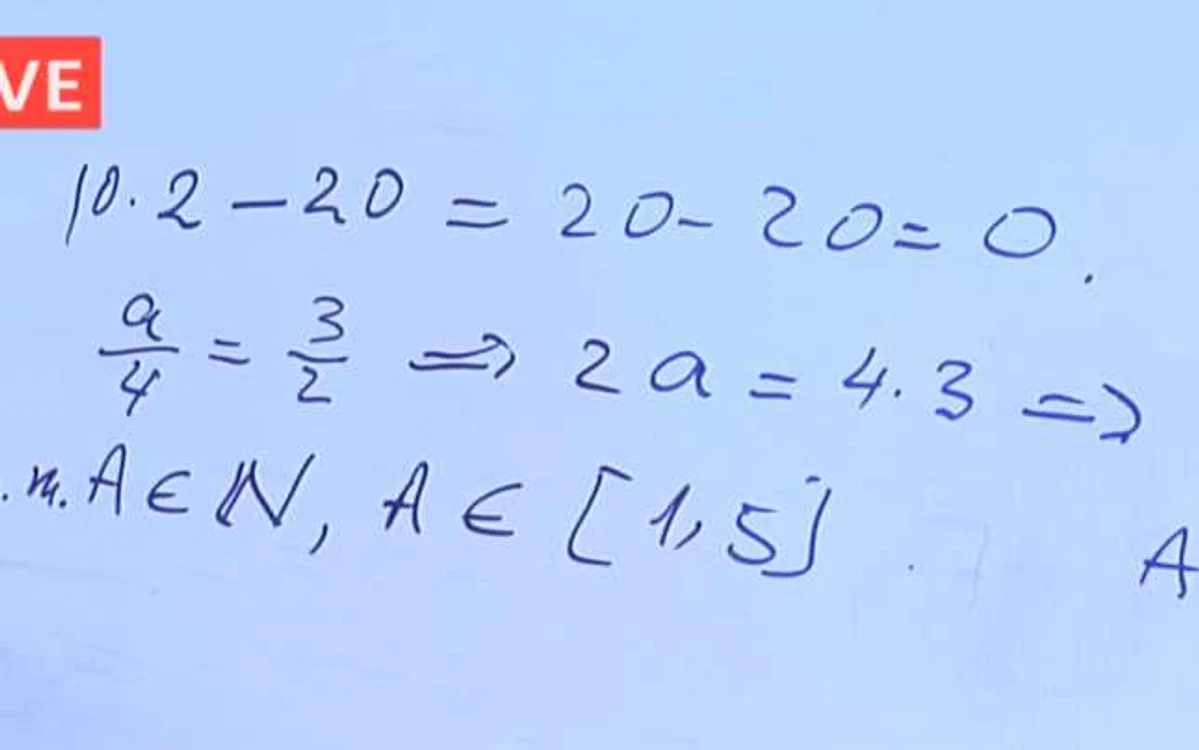 VE
10.2-20 = 20-20=0.
a/4 = 3/2 ⇒ 2a = 4.3 ⇒
.m. A∈N, A∈[1,5]. A